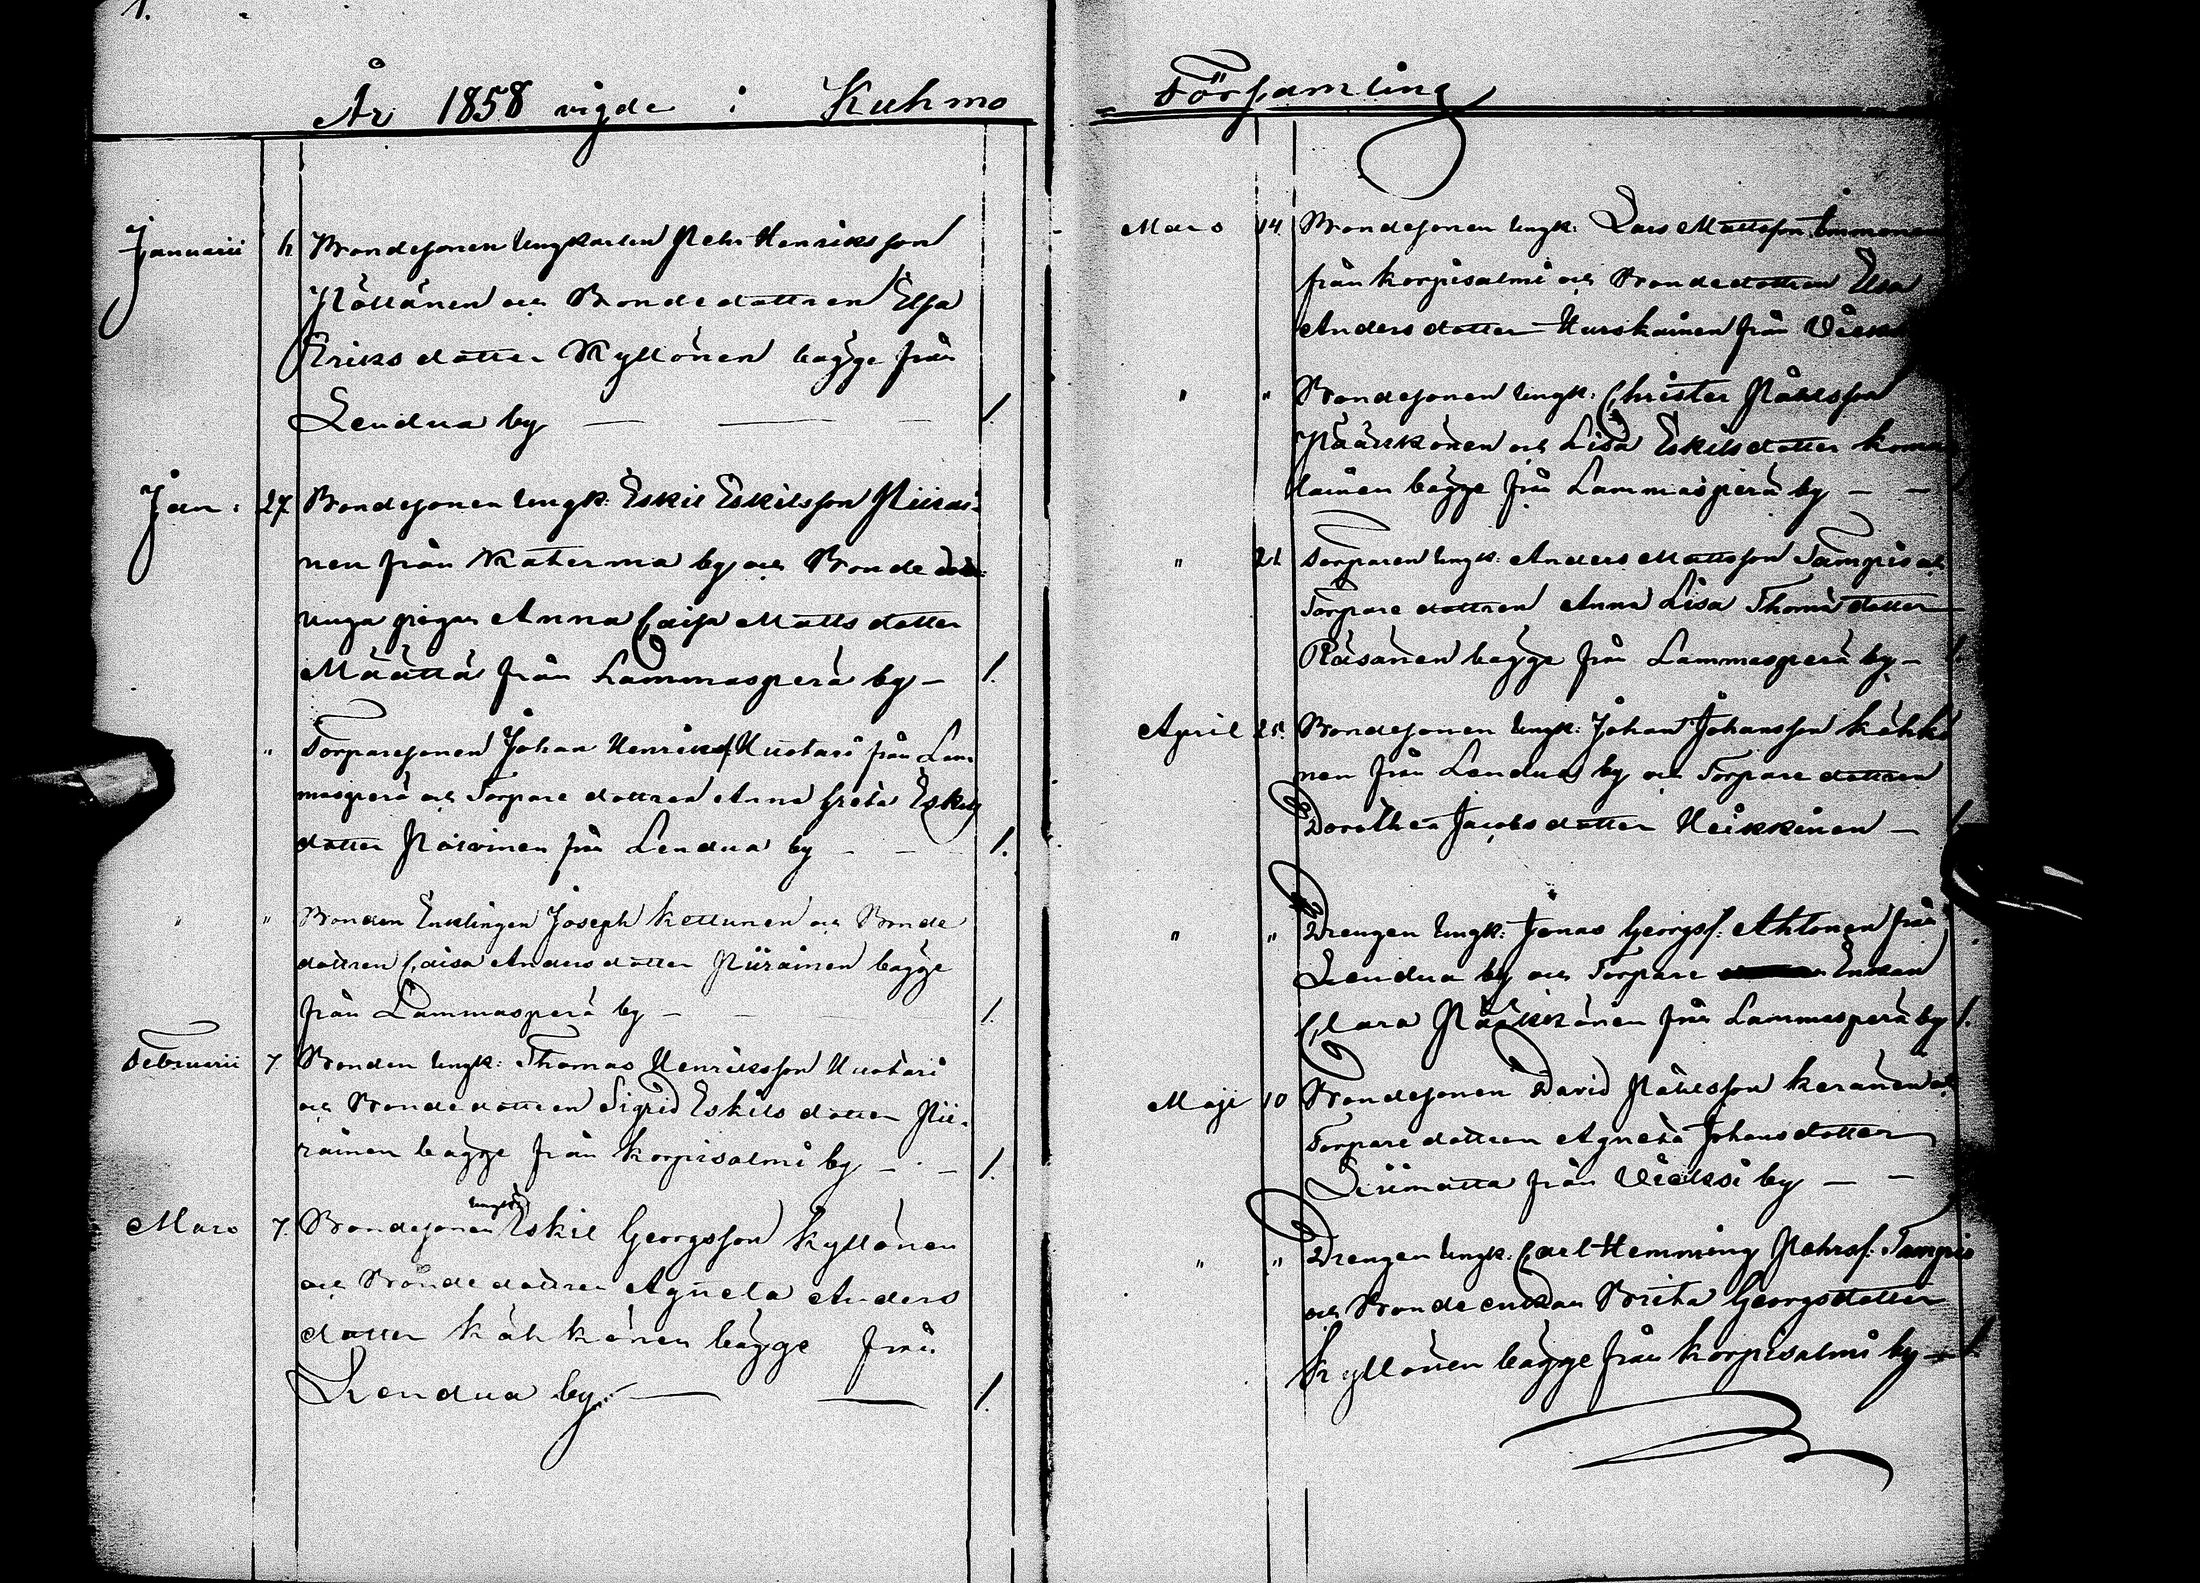 1.
År 1858 vigde i Kuhmo
Januarii Bondesonen Ungkarlen Pehr Henriksson
och Bondedottren Elsa
Eriksdotter Kyllönen bägge från
Lendua by — — — 1.
Jan: 27. Bondesonen Ungk: Eskil Eskilsson Piirai-
nen från Katerma by och Bonde
unga pigan Anna Caisa Mattsdotter
Määttä från Lammasperä by — 1.
" Torparesonen Johan Henrikss Huotari från Lam
masperä och Torpare dottren Anna Greta Eskils
dotter Polvinen från Lendua by — — 1.
" " Bonden Enklingen Joseph Kettunen och Bonde
dottren Caisa Andersdotter Piirainen bägge
från Lammasperä by — — — 1.
Februarii 7 Bonden Ungk: Thomas Henriksson Huotari
och Bondedottren Sigrid Eskilsdotter Pii-
rainen bägge från Korpisalmi by — . — 1.
Mars 7. Bondesonen Ungk Eskil Georgsson Kyllönen
och Bondedottren Agneta Anders
dotter Kähkönen bägge från
Lendua by. — — 1.
Församling
Mars 14 Bondesonen Ungk: Lars Mattsson Immonen
från Korpisalmi och Bondedottren Elsa
Andersdotter Hurskainen från
" " Bondesonen Ungk: Christer Påhlsson
Pääkkönen och Lisa Eskilsdotter Koma
lainen bägge från Lammasperä by — —
" 21 Torparen Ungk: Anders Mattsson Tampio och
Torpare dottren Anna Lisa Thomædotter
Räsänen bägge från Lammasperä by — 1.
April 25. Bondesonen Ungk: Johan Johansson Kähkö
nen från Lendua by och Torpare dottren
Dorothea Jacobsdotter Heikkinen — 1.
" " Drengen Ungk: Jonas Georgss: Ahtonen från
Lendua by och Torpare Enkan
Clara Pääkkönen från Lammasperä by 1.
Maji 10 Bondesonen David Påhlsson Keränen och
Torpare dottren Agneta Johansdotter
Liimatta från Vieksi by — —
" " Drengen Ungk: Carl Hemming Pehrss: Tampio
och Bonde enkan Brita Georgsdotter
Kyllönen bägge från Korpisalmi by — 1.